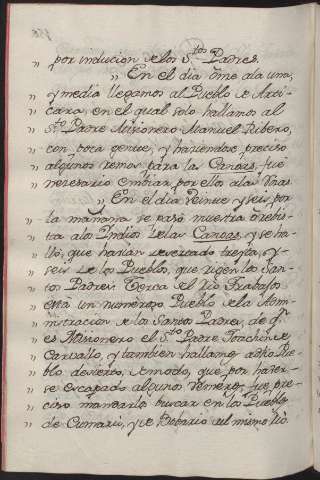 „ por inducion de los S.tos Padres.
„ „ En el dia onse ala una,
„ y media llegamos al Pueblo de
„ cara, en el qual solo hallamos al
„ S.to Padre Missionero Manuel Ribero,
„ con poca gente, y haviendo preciso
„ algunos remos para las Canoas, fue
„ necesario embiar por ellos alas
„ „ En el dia veinte y seis por
„ la mañana se pasó nuestra
„ ta alos Indios de las Canoas, y se ha-
„ lló, que havian desertado treinta, y-
„ seis de los Pueblos, que rigen los San-
„ tos Padres. Cerca del Rio
„ está un numeroso Pueblo de la Admi-
„ nistracion de los Santos Padres, de q.e
„ es Missionero el S.to Padre Joachin de
„ Carvallo, y tambien hallamos a dho Pue-
„ blo desierto, de modo, que por haver-
„ se escapado algunos remeros, fue pre-
„ ciso mandarlos buscar en los Pueblos
„ de Cumarú, y de del mismo Rio